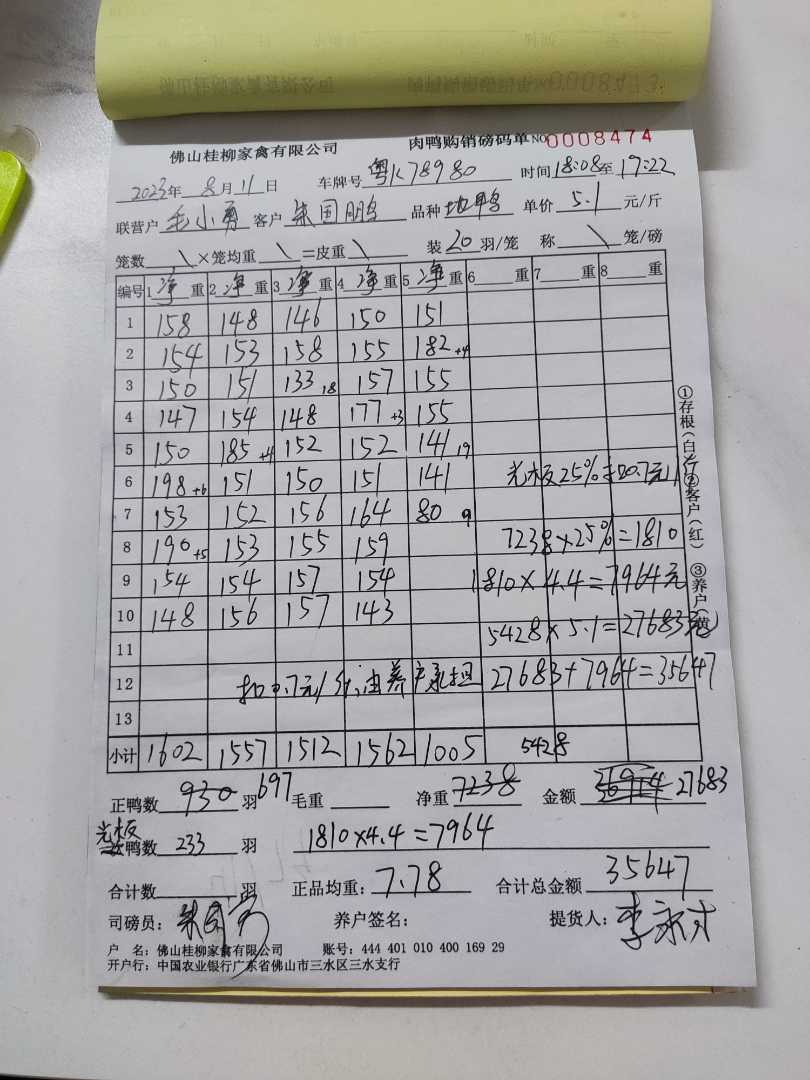 佛山桂柳家禽有限公司 肉鸭购销磅码单 NO 0008474
2023年 8月 11日 车牌号 粤K78980 时间 18:08至 19:22
联营户 毛小勇 客户 朱国鹏 品种 地鸭 单价 5.1 元/斤
笼数 \ ×笼均重 \ =皮重 \ 装 20 羽/笼 称 \ 笼/磅
编号 1 净 重 2 净 重 3 净 重 4 净 重 5 净 重 6 重 7 重 8 重
1 158 148 146 150 151
2 154 153 158 155 182+4
3 150 151 133 18 157 155
4 147 154 148 177+3 155
5 150 185+4 152 152 141 19
6 198+6 151 150 151 141 光板25%扣0.7元/斤
7 153 152 156 164 80 9
8 190+5 153 155 159 7238×25%=1810
9 154 154 157 154 1810×4.4=7964元
10 148 156 157 143
11 5428×5.1=27683元
12 扣0.7元/斤,由养户承担 27683+7964=35647
13
小计 1602 1557 1512 1562 1005 5428
正鸭数 930 羽 697 毛重 净重 7238 金额 27683
光板 鸭数 233 羽 1810×4.4=7964
合计数 羽 正品均重: 7.78 合计总金额 35647
司磅员: 养户签名: 提货人: 李永才
户 名: 佛山桂柳家禽有限公司 账号: 444 401 010 400 169 29
开户行: 中国农业银行广东省佛山市三水区三水支行
①存根(白) ②客户(红) ③养户(黄)